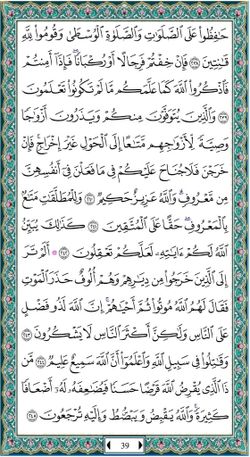 حَٰفِظُوا۟ عَلَى ٱلصَّلَوَٰتِ وَٱلصَّلَوٰةِ ٱلْوُسْطَىٰ وَقُومُوا۟ لِلَّهِ
قَٰنِتِينَ ٢٣٨ فَإِنْ خِفْتُمْ فَرِجَالًا أَوْ رُكْبَانًا فَإِذَآ أَمِنتُمْ
فَٱذْكُرُوا۟ ٱللَّهَ كَمَا عَلَّمَكُم مَّا لَمْ تَكُونُوا۟ تَعْلَمُونَ
٢٣٩ وَٱلَّذِينَ يُتَوَفَّوْنَ مِنكُمْ وَيَذَرُونَ أَزْوَٰجًا
وَصِيَّةً لِّأَزْوَٰجِهِم مَّتَٰعًا إِلَى ٱلْحَوْلِ غَيْرَ إِخْرَاجٍ فَإِنْ
خَرَجْنَ فَلَا جُنَاحَ عَلَيْكُمْ فِى مَا فَعَلْنَ فِىٓ أَنفُسِهِنَّ
مِن مَّعْرُوفٍ وَٱللَّهُ عَزِيزٌ حَكِيمٌ ٢٤٠ وَلِلْمُطَلَّقَٰتِ مَتَٰعٌۢ
بِٱلْمَعْرُوفِ حَقًّا عَلَى ٱلْمُتَّقِينَ ٢٤١ كَذَٰلِكَ يُبَيِّنُ
ٱللَّهُ لَكُمْ ءَايَٰتِهِۦ لَعَلَّكُمْ تَعْقِلُونَ ٢٤٢ ۞ أَلَمْ تَرَ
إِلَى ٱلَّذِينَ خَرَجُوا۟ مِن دِيَٰرِهِمْ وَهُمْ أُلُوفٌ حَذَرَ ٱلْمَوْتِ
فَقَالَ لَهُمُ ٱللَّهُ مُوتُوا۟ ثُمَّ أَحْيَٰهُمْ إِنَّ ٱللَّهَ لَذُو فَضْلٍ
عَلَى ٱلنَّاسِ وَلَٰكِنَّ أَكْثَرَ ٱلنَّاسِ لَا يَشْكُرُونَ ٢٤٣
وَقَٰتِلُوا۟ فِى سَبِيلِ ٱللَّهِ وَٱعْلَمُوٓا۟ أَنَّ ٱللَّهَ سَمِيعٌ عَلِيمٌ ٢٤٤ مَّن
ذَا ٱلَّذِى يُقْرِضُ ٱللَّهَ قَرْضًا حَسَنًا فَيُضَٰعِفَهُۥ لَهُۥٓ أَضْعَافًا
كَثِيرَةً وَٱللَّهُ يَقْبِضُ وَيَبْصُۜطُ وَإِلَيْهِ تُرْجَعُونَ ٢٤٥
39